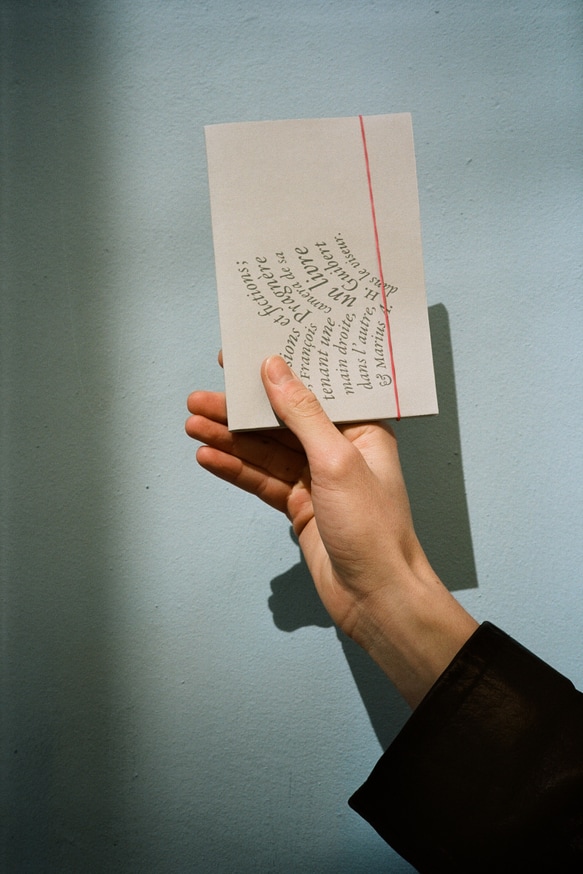 sions et fictions;
, François Pragnère
tenant une camera de sa
main droite, un livre
dans l'autre, H. Guibert
& Marius dans le viseur.